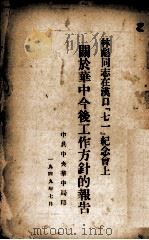 林彪同志在漢口「七一」紀念會上
關於華中今後工作方針的報告
中共中央華中局印
一九四九年七月